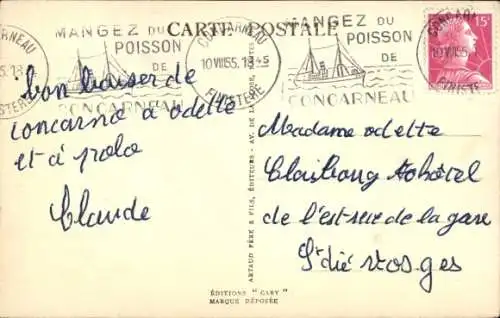 CARTE POSTALE
MANGEZ DU
POISSON
DE
CONCARNEAU
CONCARNEAU
10 VIII 55. 18 45
FINISTERE
MANGEZ DU
POISSON
DE
CONCARNEAU
15F
bon baiser de
concarno a odette
et a polo
Claude
Madame odette
hôtel
de l'est rue de la gare
St dié vosges
ARTAUD PÈRE & FILS, ÉDITEURS - AV. DE LA
ÉDITIONS "GABY"
MARQUE DÉPOSÉE